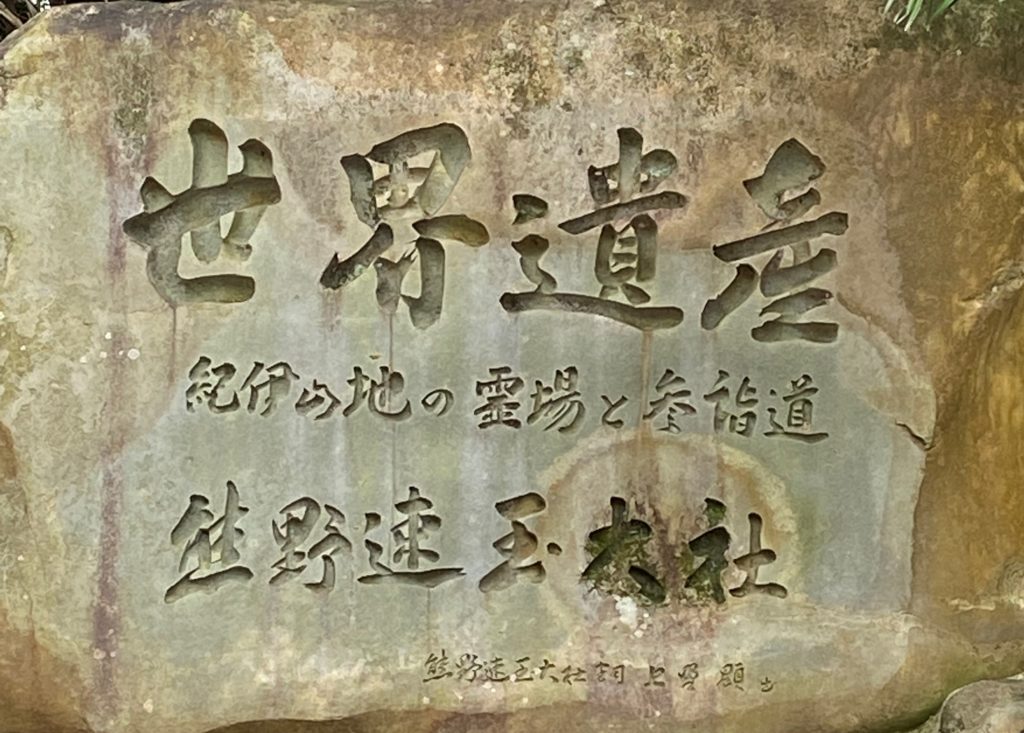 世界遺産
紀伊山地の霊場と参詣道
熊野速玉大社
熊野速玉大社宮司 上野 顕